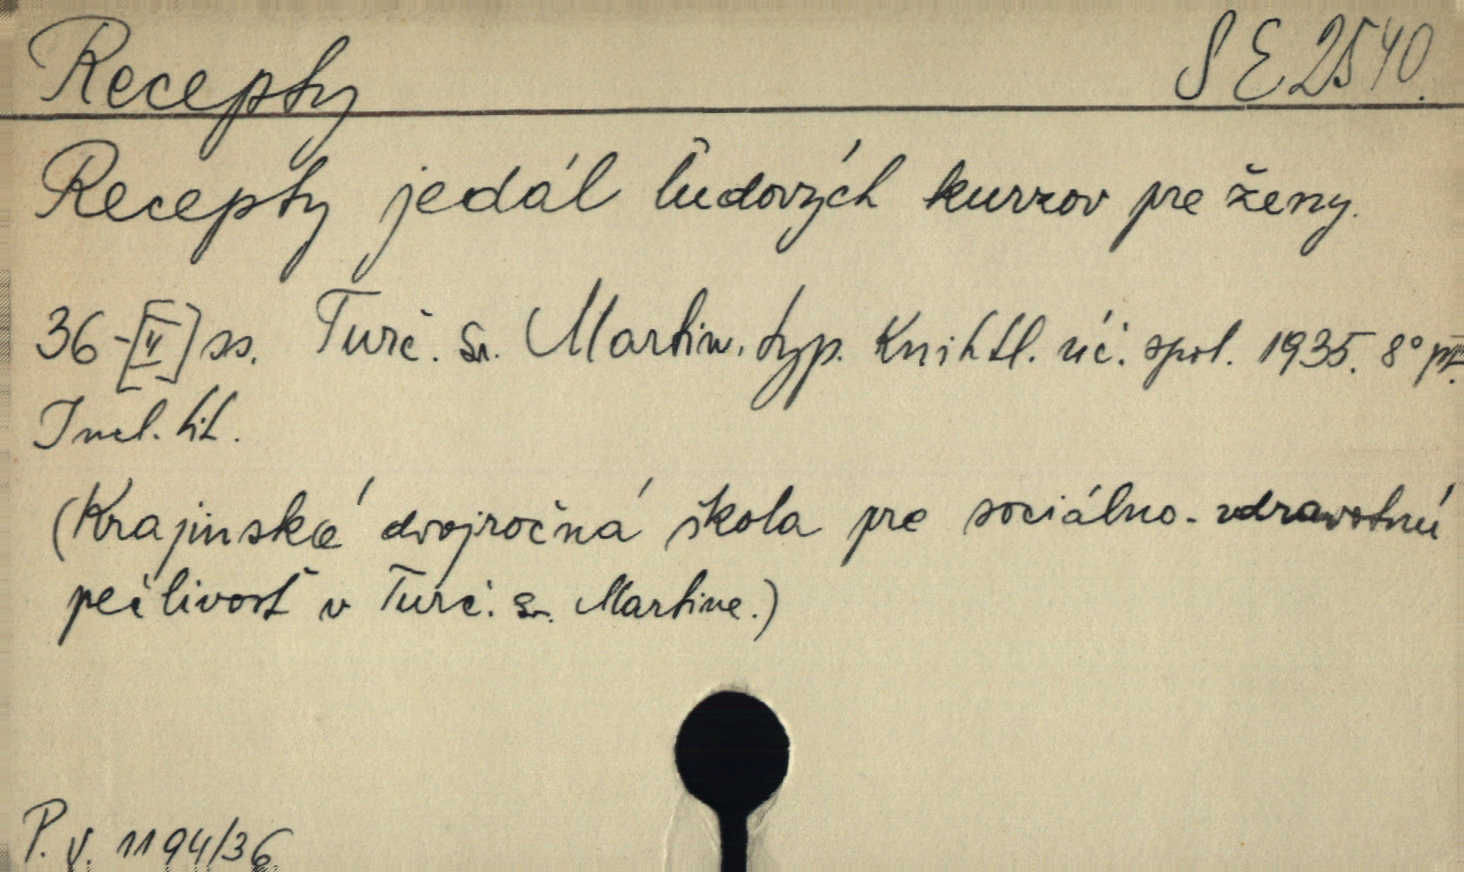 Recepty
S E 2540.
Recepty jedál ľudových kurzov pre ženy.
36-[II] ss. Turč. Sv. Martin. typ. Kníhtl. úč. spol. 1935. 8°
Incl. tit.
(Krajinská dvojročná škola pre sociálno-zdravotnú
pečlivosť v Turč. Sv. Martine.)
P. V. 1194/36